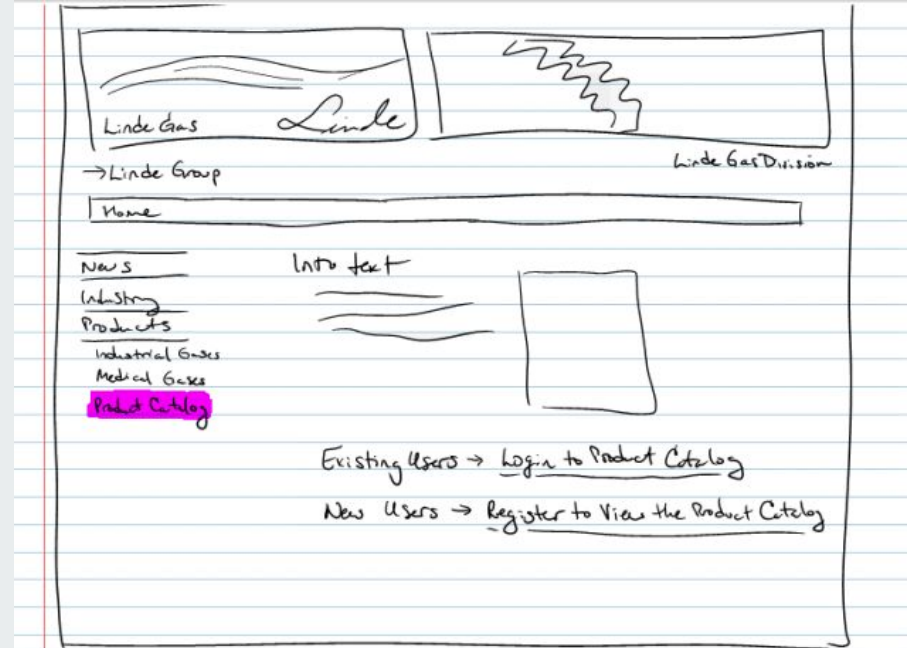 Linde Gas
Linde
Linde Gas Division
→Linde Group
Home
News
Industry
Products
Industrial Gases
Medical Gases
Product Catalog
Intro text
Existing Users → Login to Product Catalog
New Users → Register to View the Product Catalog